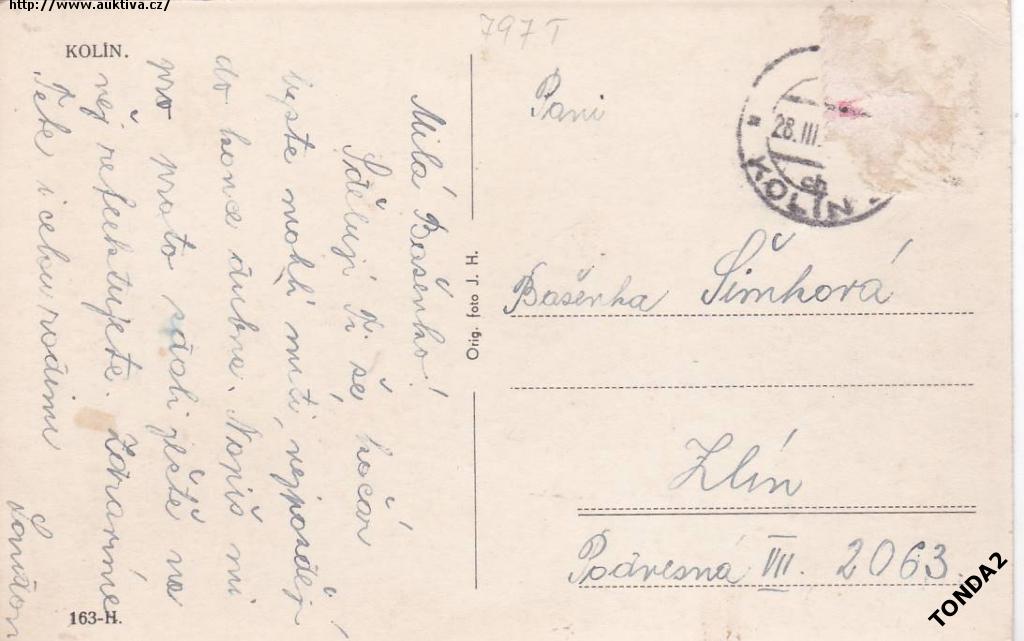 http://www.auktiva.cz/
KOLÍN.
797 T
Milá Bašenko!
Sděluji Ti, še kočár
byste mohli míti, nejposději
do konce dubna. Napiš mi
pro proto zdali ještě na
nej reflektujete. Zdravíme
Tebe i celou rodinu
163-H.
Orig. foto J. H.
Paní
28.III.
KOLÍN
Bašenka Šimková
Zlín
Podvesná VIII. 2063.
TONDA2